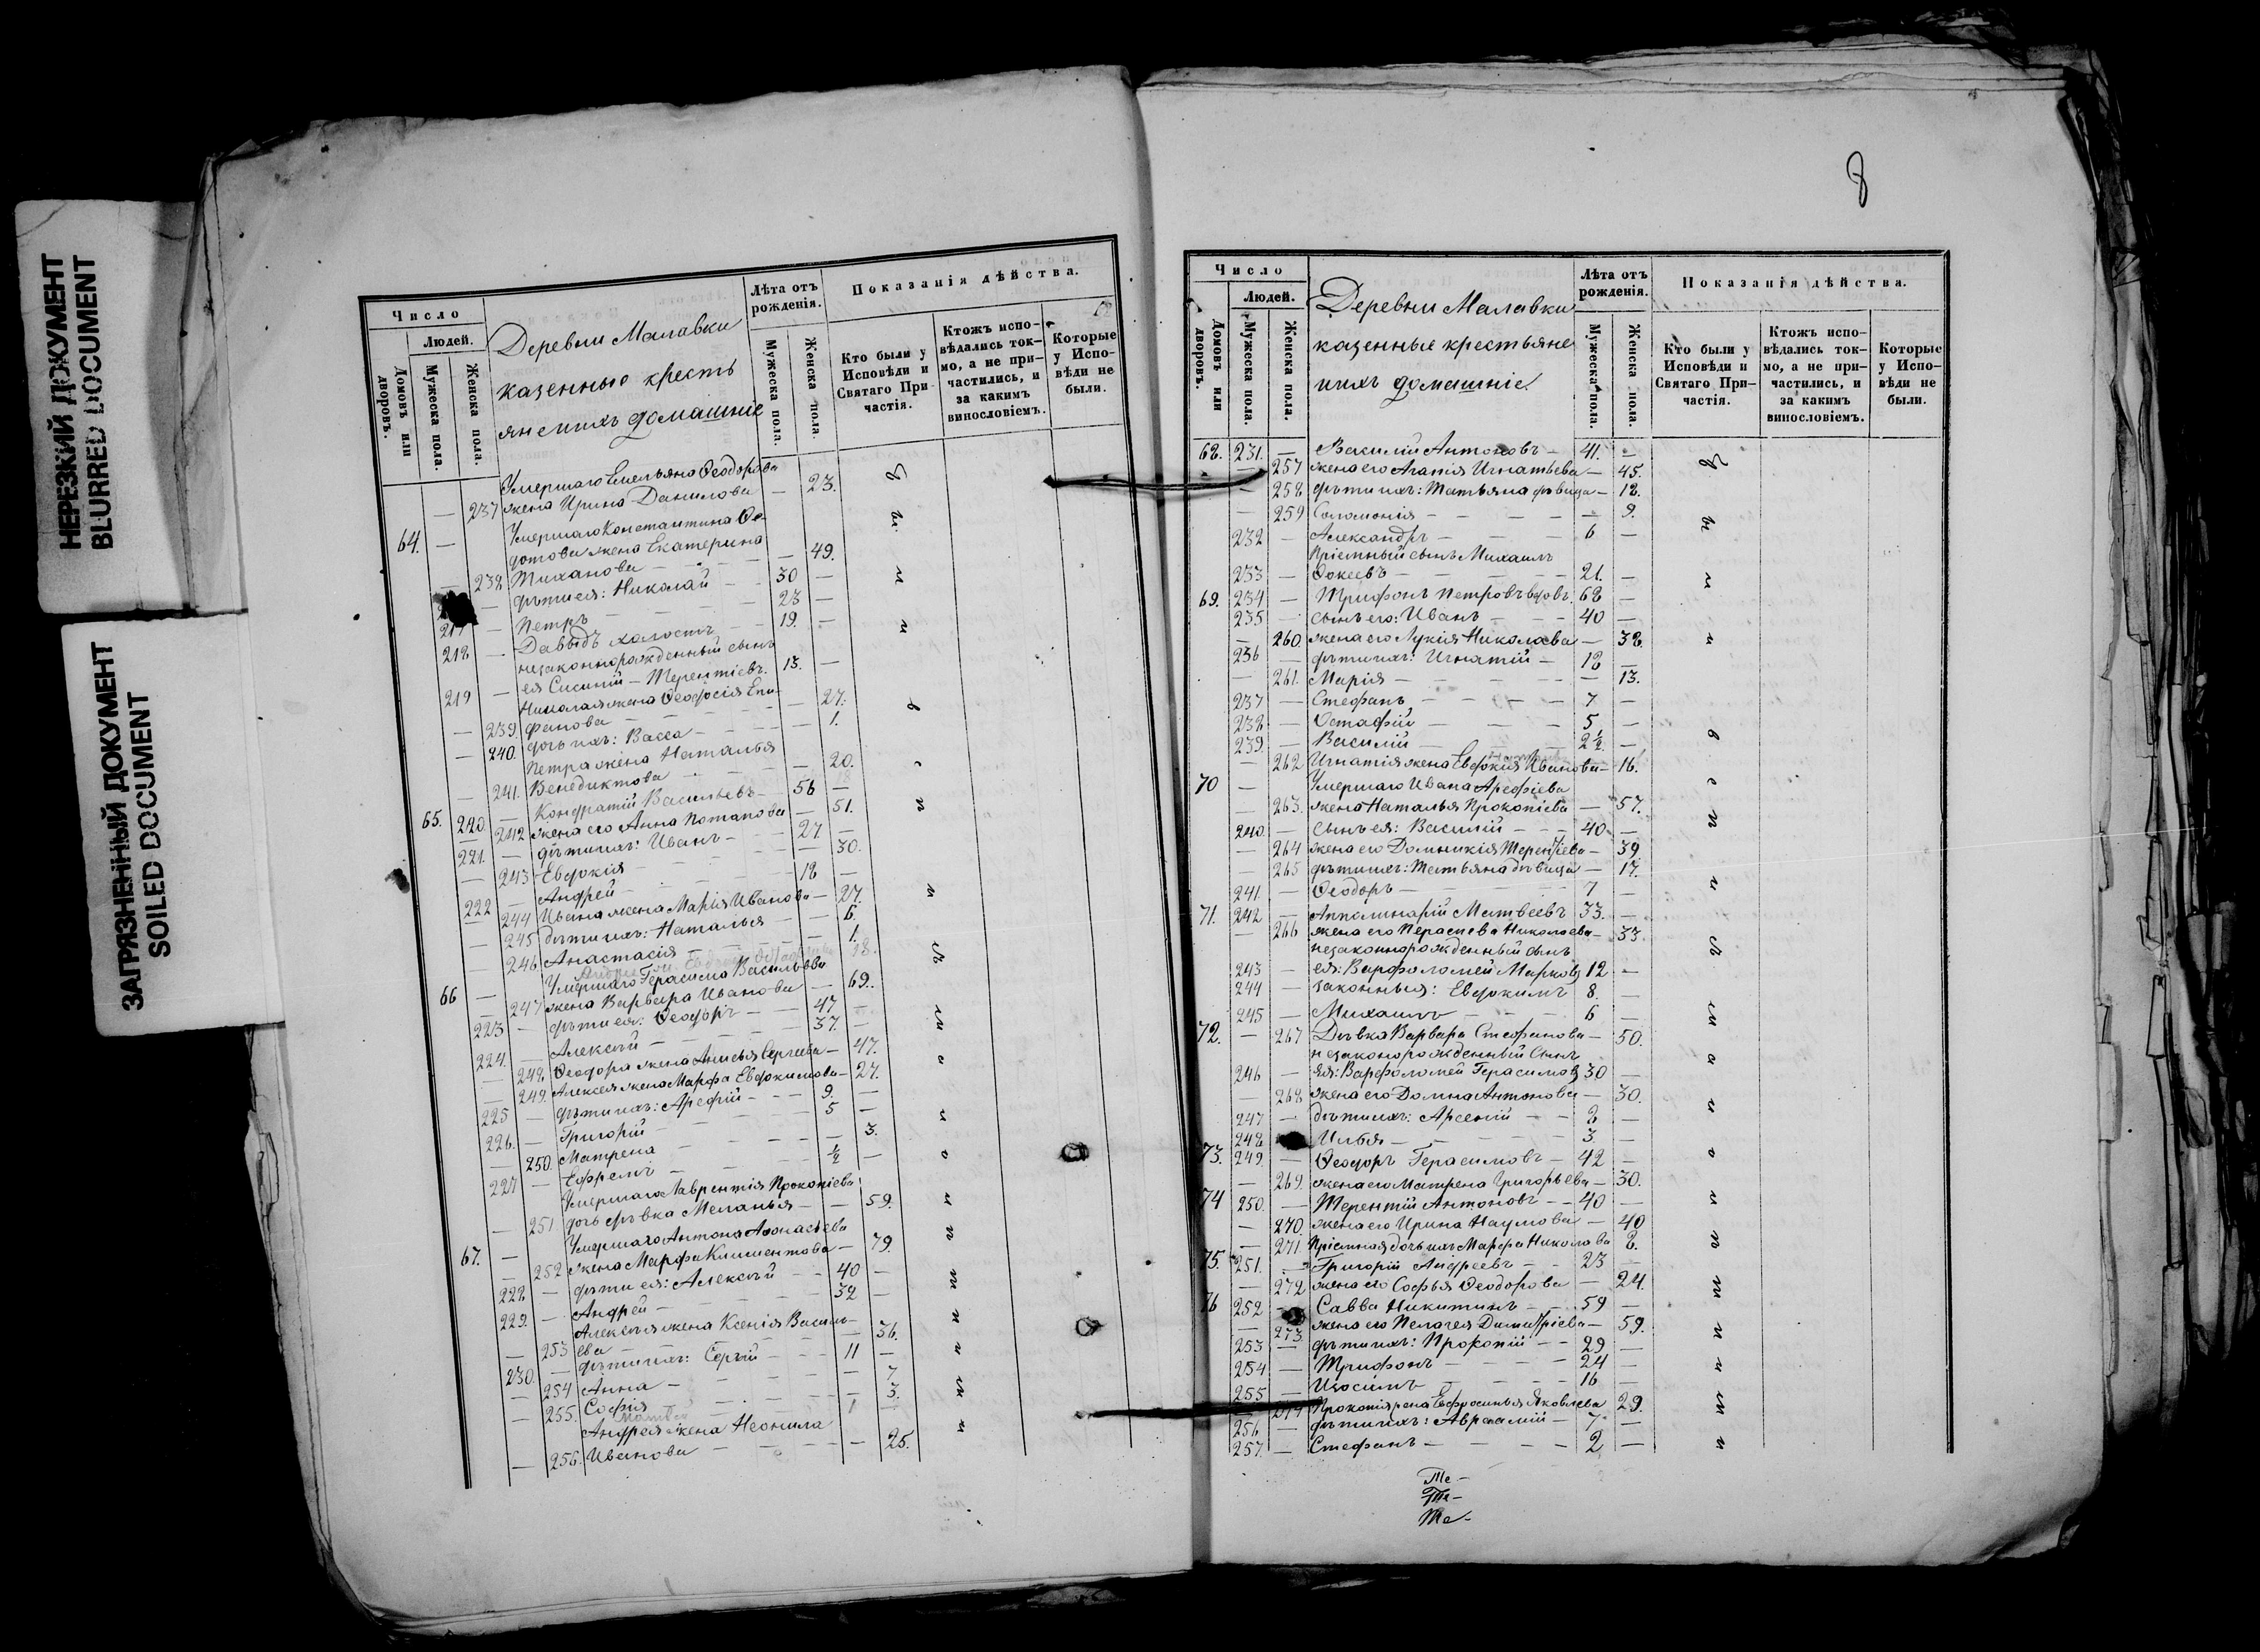 НЕРЕЗКИЙ ДОКУМЕНТ
BLURRED DOCUMENT
ЗАГРЯЗНЕННЫЙ ДОКУМЕНТ
SOILED DOCUMENT
Число
Людей.
Домовъ или дворовъ.
Мужеска пола.
Женска пола.
Деревни Малавки
казенные кресть
яне ихъ домашніе
Лѣта отъ рожденія.
Мужеска пола.
Женска пола.
Показанія дѣйства.
Кто были у Исповѣди и Святаго Причастія.
Ктожъ исповѣдались токмо, а не причастились, и за какимъ винословіемъ.
Которые у Исповѣди не были.
Умершаго Емельяна Ѳеодорова
— 237 жена Ирина Данилова — 23.
64. — Умершаго Константина Ѳе-
дотова жена Екатерина
— 238 Тиханова — 49.
— дѣти ея: Николай — 30 —
217 — Петръ — 23 —
218 — Давыдъ холостъ — 19. —
незаконнорожденный сынъ
219 — ея Сисиній Терентіевъ. 13. —
Николая жена Ѳеодосія Епи-
— 239. фанова — 27.
— 240. дочь ихъ: Васса — 1.
Петра жена Наталья
— 241. Венедиктова — 20.
65. 220 — Кондратій Васильевъ — 56 —
— 242 жена его Анна Потапова — 51.
221. — дѣти ихъ: Иванъ — 27 —
— 243 Евдокія — 30.
222 — Андрей — 18 —
— 244 Ивана жена Марія Иванова — 27.
— 245 дѣти ихъ: Наталья — 6.
— 246 Анастасія — 1.
66 — Умершаго Герасима Васильева
— 247 жена Варвара Иванова — 69.
223 — дѣти ея: Ѳеодоръ — 47 —
224. — Алексѣй — 37. —
— 248 Ѳеодора жена Анисья Сергеева — 47.
— 249. Алексея жена Марфа Евдокимова — 27.
225 — дѣти ихъ: Арефій — 9. —
226. — Григорій — 5 —
— 250. Матрена — 3.
227 — Ефремъ — ½ —
Умершаго Лаврентія Прокопіева
— 251. дочь дѣвка Меланья — 59.
67. — Умершаго Антона Аѳонасьева
— 252 жена Марфа Климентова — 79.
228 — дѣти ея: Алексѣй — 40 —
229. — Андрей — 32 —
Алексѣя жена Ксенія Василь-
— 253 ева — 36.
230. — дѣти ихъ: Сергѣй — 11 —
— 254 Анна — 7
— 255. Софія — 3.
Андрея жена Неонила
— 256. Иванова — 25.
8
Число
Людей.
Домовъ или дворовъ.
Мужеска пола.
Женска пола.
Деревни Малавки
казенные крестьяне
ихъ домашніе
Лѣта отъ рожденія.
Мужеска пола.
Женска пола.
Показанія дѣйства.
Кто были у Исповѣди и Святаго Причастія.
Ктожъ исповѣдались токмо, а не причастились, и за какимъ винословіемъ.
Которые у Исповѣди не были.
68. 231. — Василій Антоновъ — 41. —
— 257 жена его Агапія Игнатьева — 45.
— 258 дѣти ихъ: Татьяна дѣвица — 18.
— 259 Соломонія — 9.
232 — Александръ — 6 —
Пріемный сынъ Михаилъ
233 — Ѳокеевъ — 21. —
69. 234 — Трифонъ Петровъ вдовъ. 68 —
235 — сынъ его: Иванъ — 40 —
— 260. жена его Лукія Николаева — 38.
236 — дѣти ихъ: Игнатій — 18 —
— 261. Марія — 13.
237 — Стефанъ — 7 —
238 — Остафій — 5 —
239. — Василій — 2½. —
— 262 Игнатія жена Евдокія Иванова — 16.
70 — Умершаго Ивана Арефіева
— 263. жена Наталья Прокопіева — 57.
240. — сынъ ея: Василій — 40 —
— 264 жена его Домникія Терентіева — 39
— 265 дѣти ихъ: Татьяна дѣвица — 17.
241. — Ѳеодоръ — 7 —
71. 242 — Апполинарій Матвеевъ 33. —
— 266 жена его Параскева Николаева — 33.
незаконнорожденный сынъ
243 — ея: Варфоломей Марковъ 12 —
244 — законныя: Евдокимъ 8. —
245 — Михаилъ — 6 —
72. — 267 Дѣвка Варвара Стефанова — 50.
незаконорожденный сынъ
246 — ея: Варфоломей Герасимовъ 30 —
— 268 жена его Домна Антонова — 30.
247 — дѣти ихъ: Арсеній — 8 —
248 Илья — 3. —
73. 249. — Ѳеодоръ Герасимовъ — 42 —
— 269. жена его Матрена Григорьева — 30.
74 250. — Терентій Антоновъ — 40 —
— 270. жена его Ирина Наумова — 40
— 271 Пріемная дочь ихъ Марфа Николаева 8.
75. 251. — Григорій Андреевъ — 23 —
— 272 жена его Софья Ѳеодорова — 24.
76 252 — Савва Никитинъ — 59 —
— 273 жена его Пелагея Димитріева — 59.
253 — дѣти ихъ: Прокопій — 29 —
254 — Трифонъ — 24 —
255 — Изосимъ — 16 —
— 274 Прокопія жена Евфросинья Яковлева 29.
256 — дѣти ихъ: Авраамій — 7 —
257. — Стефанъ — 2 —